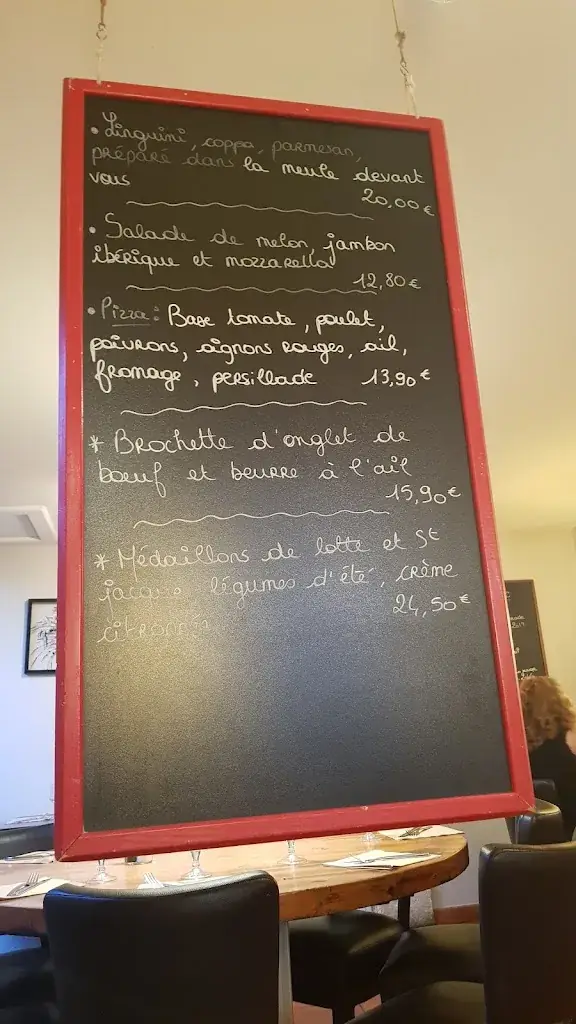 • Linguini, coppa, parmesan,
préparé dans la meule devant
vous
20,00€
• Salade de melon, jambon
ibérique et mozzarella
12,80€
• Pizza: Base tomate, poulet,
poivrons, oignons rouges, ail,
fromage, persillade 13,90€
* Brochette d'onglet de
boeuf et beurre à l'ail
15,90€
* Médaillons de lotte et St
jacques légumes d'été, crème
24,50€
citronnée